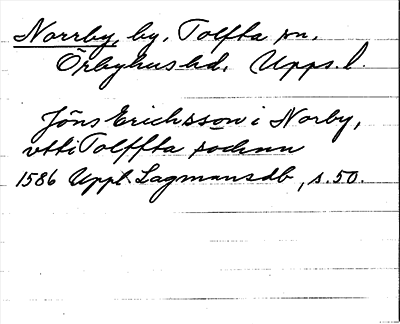 Norrby, by. Tolfta sn.
Örbyhus hd. Upps. l.
Jöns Ericksson i Norby,
vtti Tolffta sochnn
1586 Uppl. Lagmansdb, s. 50.